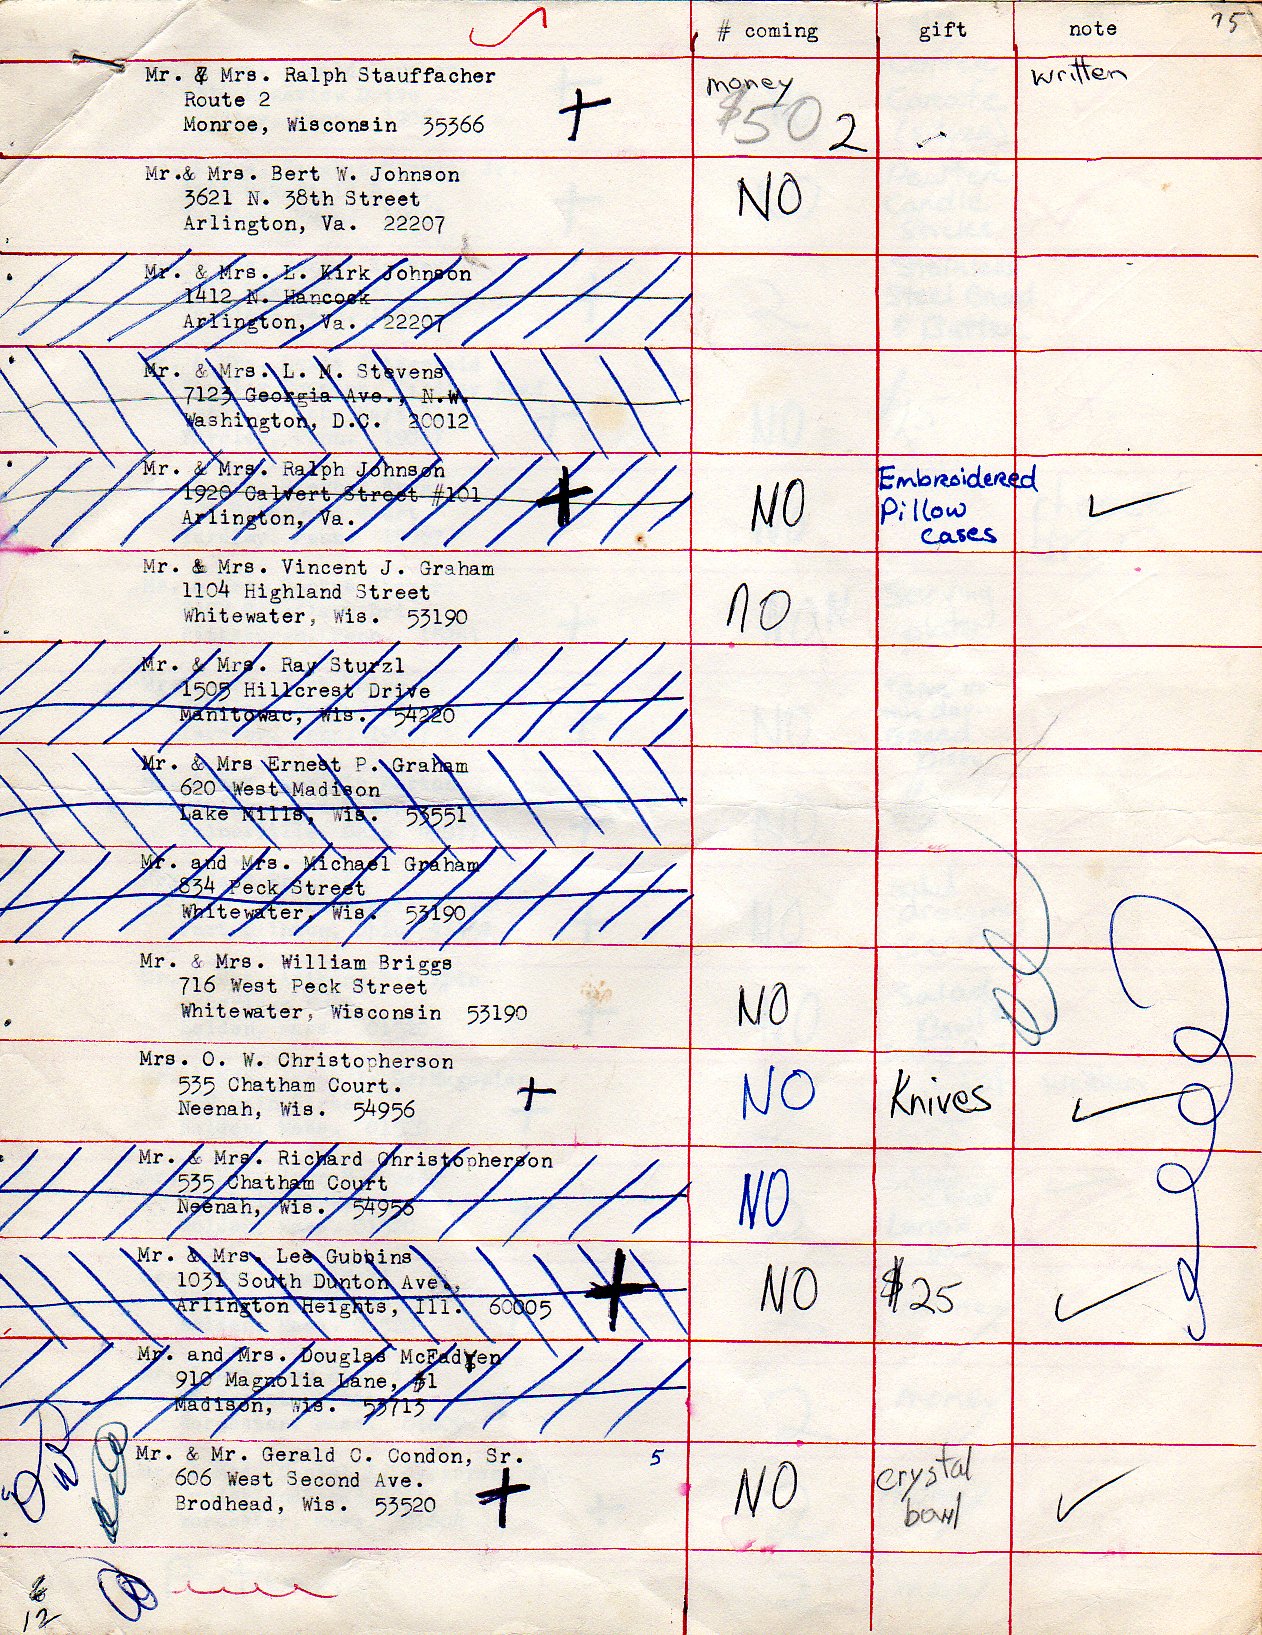 # coming gift note 75
Mr. & Mrs. Ralph Stauffacher money written
Route 2 $50
Monroe, Wisconsin 35366 + 2 -
Mr.& Mrs. Bert W. Johnson
3621 N. 38th Street NO
Arlington, Va. 22207
Mr. & Mrs. L. Kirk Johnson
1412 N. Hancock
Arlington, Va. 22207
Mr. & Mrs. L. M. Stevens
7123 Georgia Ave., N.W.
Washington, D.C. 20012
Mr. & Mrs. Ralph Johnson Embroidered
1920 Calvert Street #101 + NO Pillow
Arlington, Va. cases
Mr. & Mrs. Vincent J. Graham
1104 Highland Street no
Whitewater, Wis. 53190
Mr. & Mrs. Ray Sturzl
1505 Hillcrest Drive
Manitowac, Wis. 54220
Mr. & Mrs Ernest P. Graham
620 West Madison
Lake Mills, Wis. 53551
Mr. and Mrs. Michael Graham
834 Peck Street
Whitewater, Wis. 53190
Mr. & Mrs. William Briggs
716 West Peck Street NO
Whitewater, Wisconsin 53190
Mrs. O. W. Christopherson
535 Chatham Court. + NO Knives
Neenah, Wis. 54956
Mr. & Mrs. Richard Christopherson
535 Chatham Court NO
Neenah, Wis. 54956
Mr. & Mrs. Lee Gubbins
1031 South Dunton Ave., + NO $25
Arlington Heights, Ill. 60005
Mr. and Mrs. Douglas McFadyen
910 Magnolia Lane, #1
Madison, Wis. 53713
Mr. & Mr. Gerald C. Condon, Sr. 5 crystal
606 West Second Ave. + NO bowl
Brodhead, Wis. 53520
12